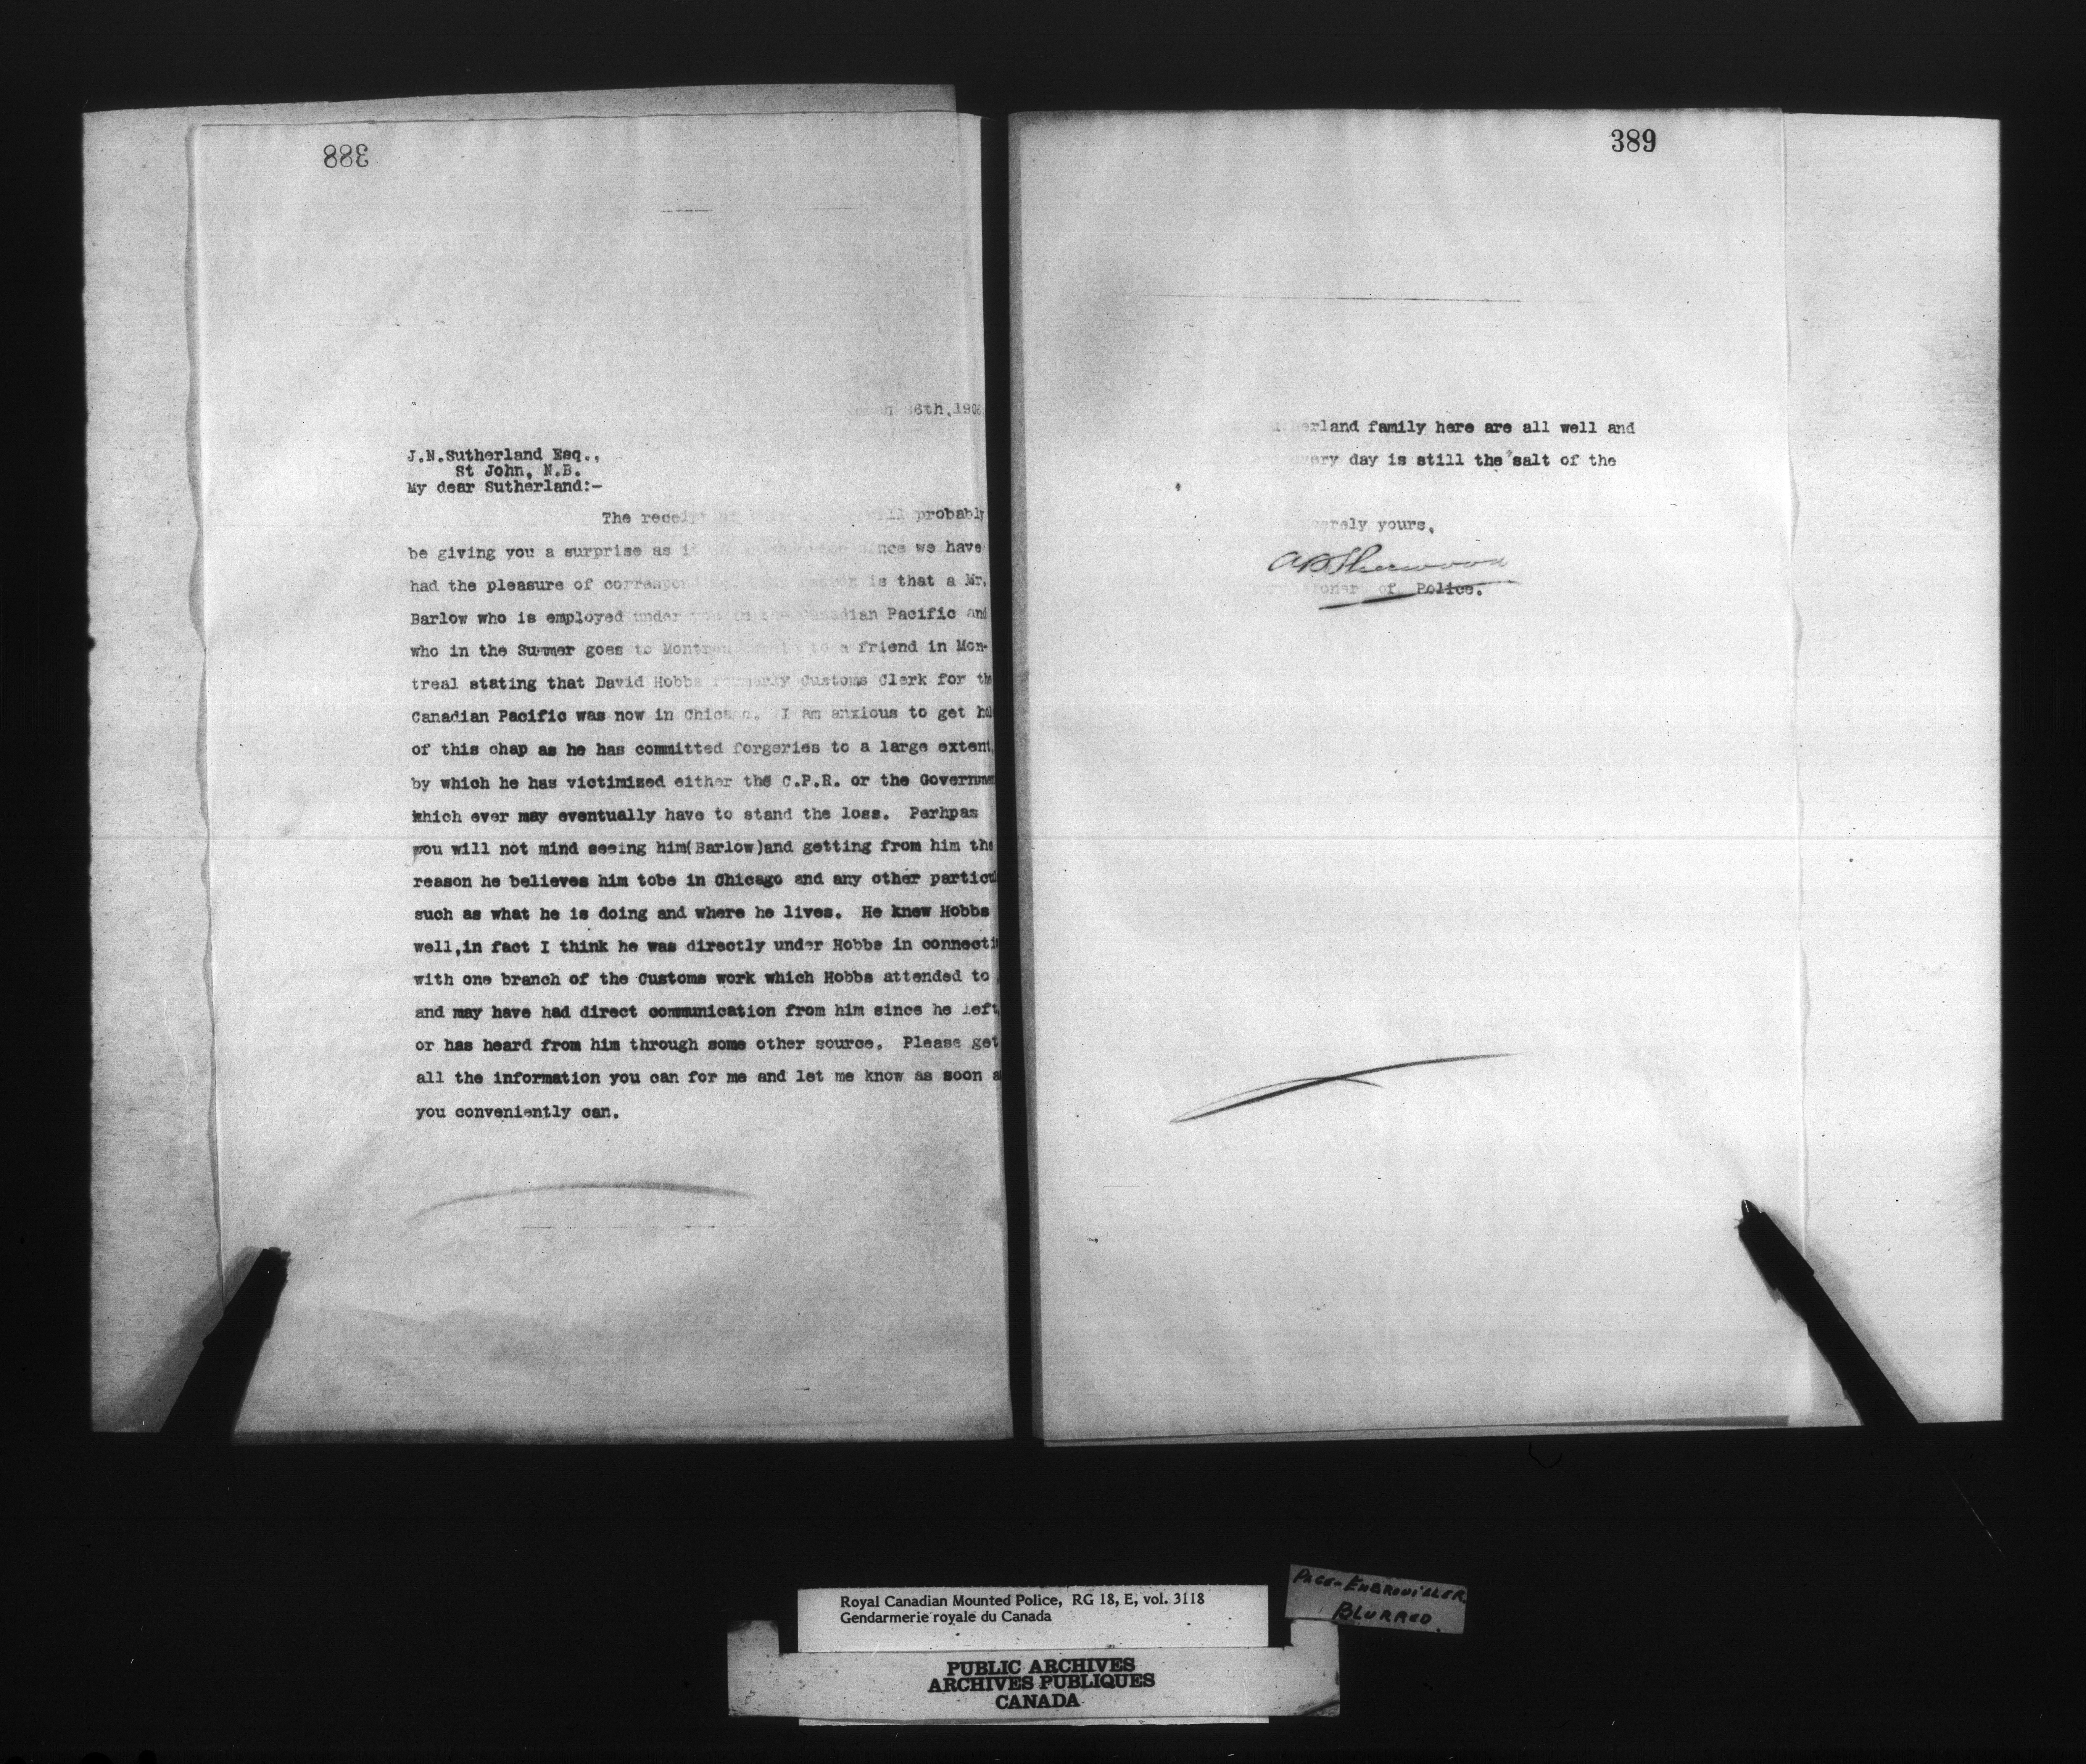 388
6th, 190
J.N.Sutherland Esq.,
St John, N.B.
My dear Sutherland:-
The receipt of will probably
be giving you a surprise as it since we have
had the pleasure of is that a Mr.
Barlow who is employed under you in the Canadian Pacific and
who in the Summer goes to to a friend in Mon-
treal stating that David Hobbs formerly Customs Clerk for the
Canadian Pacific was now in Chicago. I am anxious to get
of this chap as he has committed forgeries to a large extent,
by which he has victimized either the C.P.R. or the Governmen
which ever may eventually have to stand the loss. Perhpas
you will not mind seeing him(Barlow)and getting from him the
reason he believes him tobe in Chicago and any other particu
such as what he is doing and where he lives. He knew Hobbs
well,in fact I think he was directly under Hobbs in connecti
with one branch of the Customs work which Hobbs attended to
and may have had direct communication from him since he left,
or has heard from him through some other source. Please get
all the information you can for me and let me know as soon a
you conveniently can.
389
erland family here are all well and
every day is still the "salt of the
erely yours,
A P Sherwood
ioner of Police.
Royal Canadian Mounted Police, RG 18, E, vol. 3118
Gendarmerie royale du Canada
PAGE-EMBROUILLER
BLURRED.
PUBLIC ARCHIVES
ARCHIVES PUBLIQUES
CANADA